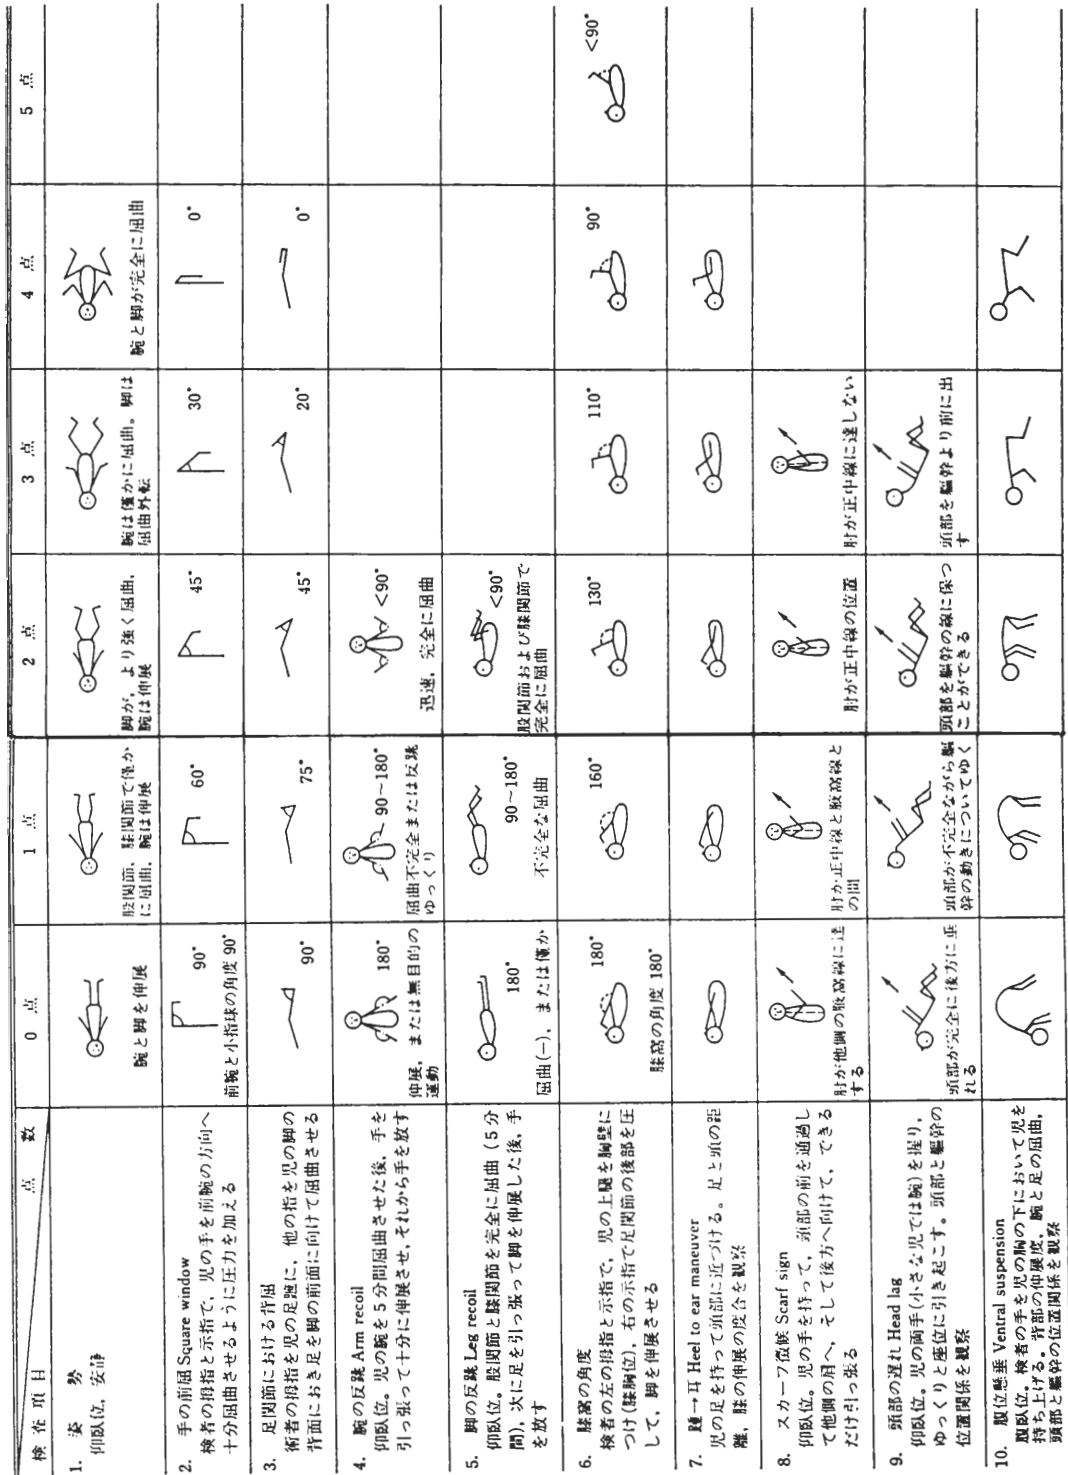 検査項目 点数 0点 1点 2点 3点 4点 5点
1. 姿勢
仰臥位、安静
腕と脚を伸展
股関節、膝関節で僅か
に屈曲、腕は伸展
脚が、より強く屈曲、
腕は伸展
腕は僅かに屈曲。脚は
屈曲外転
腕と脚が完全に屈曲
2. 手の前屈 Square window
検者の拇指と示指で、児の手を前腕の方向へ
十分屈曲させるように圧力を加える
90°
前腕と小指球の角度 90°
60°
45°
30°
0°
3. 足関節における背屈
術者の拇指を児の足蹠に、他の指を児の脚の
背面におき足を脚の前面に向けて屈曲させる
90°
75°
45°
20°
0°
4. 腕の反跳 Arm recoil
仰臥位。児の腕を5分間屈曲させた後、手を
引っ張って十分に伸展させ、それから手を放す
180°
伸展、または無目的の
運動
90~180°
屈曲不完全または反跳
ゆっくり
<90°
迅速、完全に屈曲
5. 脚の反跳 Leg recoil
仰臥位。股関節と膝関節を完全に屈曲(5分
間)、次に足を引っ張って脚を伸展した後、手
を放す
180°
屈曲(−)、または僅か
90~180°
不完全な屈曲
<90°
股関節および膝関節で
完全に屈曲
6. 膝窩の角度
検者の左の拇指と示指で、児の上腿を胸壁に
つけ(膝胸位)、右の示指で足関節の後部を圧
して、脚を伸展させる
180°
膝窩の角度 180°
160°
130°
110°
90°
<90°
7. 踵→耳 Heel to ear maneuver
児の足を持って頭部に近づける。足と頭の距
離、膝の伸展の度合を観察
8. スカーフ徴候 Scarf sign
仰臥位。児の手を持って、頚部の前を通過し
て他側の肩へ、そして後方へ向けて、できる
だけ引っ張る
肘が他側の腋窩線に達
する
肘が正中線と腋窩線と
の間
肘が正中線の位置
肘が正中線に達しない
9. 頭部の遅れ Head lag
仰臥位。児の両手(小さな児では腕)を握り、
ゆっくりと座位に引き起こす。頭部と軀幹の
位置関係を観察
頭部が完全に後方に垂
れる
頭部が不完全ながら軀
幹の動きについてゆく
頭部を軀幹の線に保つ
ことができる
頭部を軀幹より前に出
す
10. 腹位懸垂 Ventral suspension
腹臥位。検者の手を児の胸の下において児を
持ち上げる。背部の伸展度、腕と足の屈曲、
頭部と軀幹の位置関係を観察